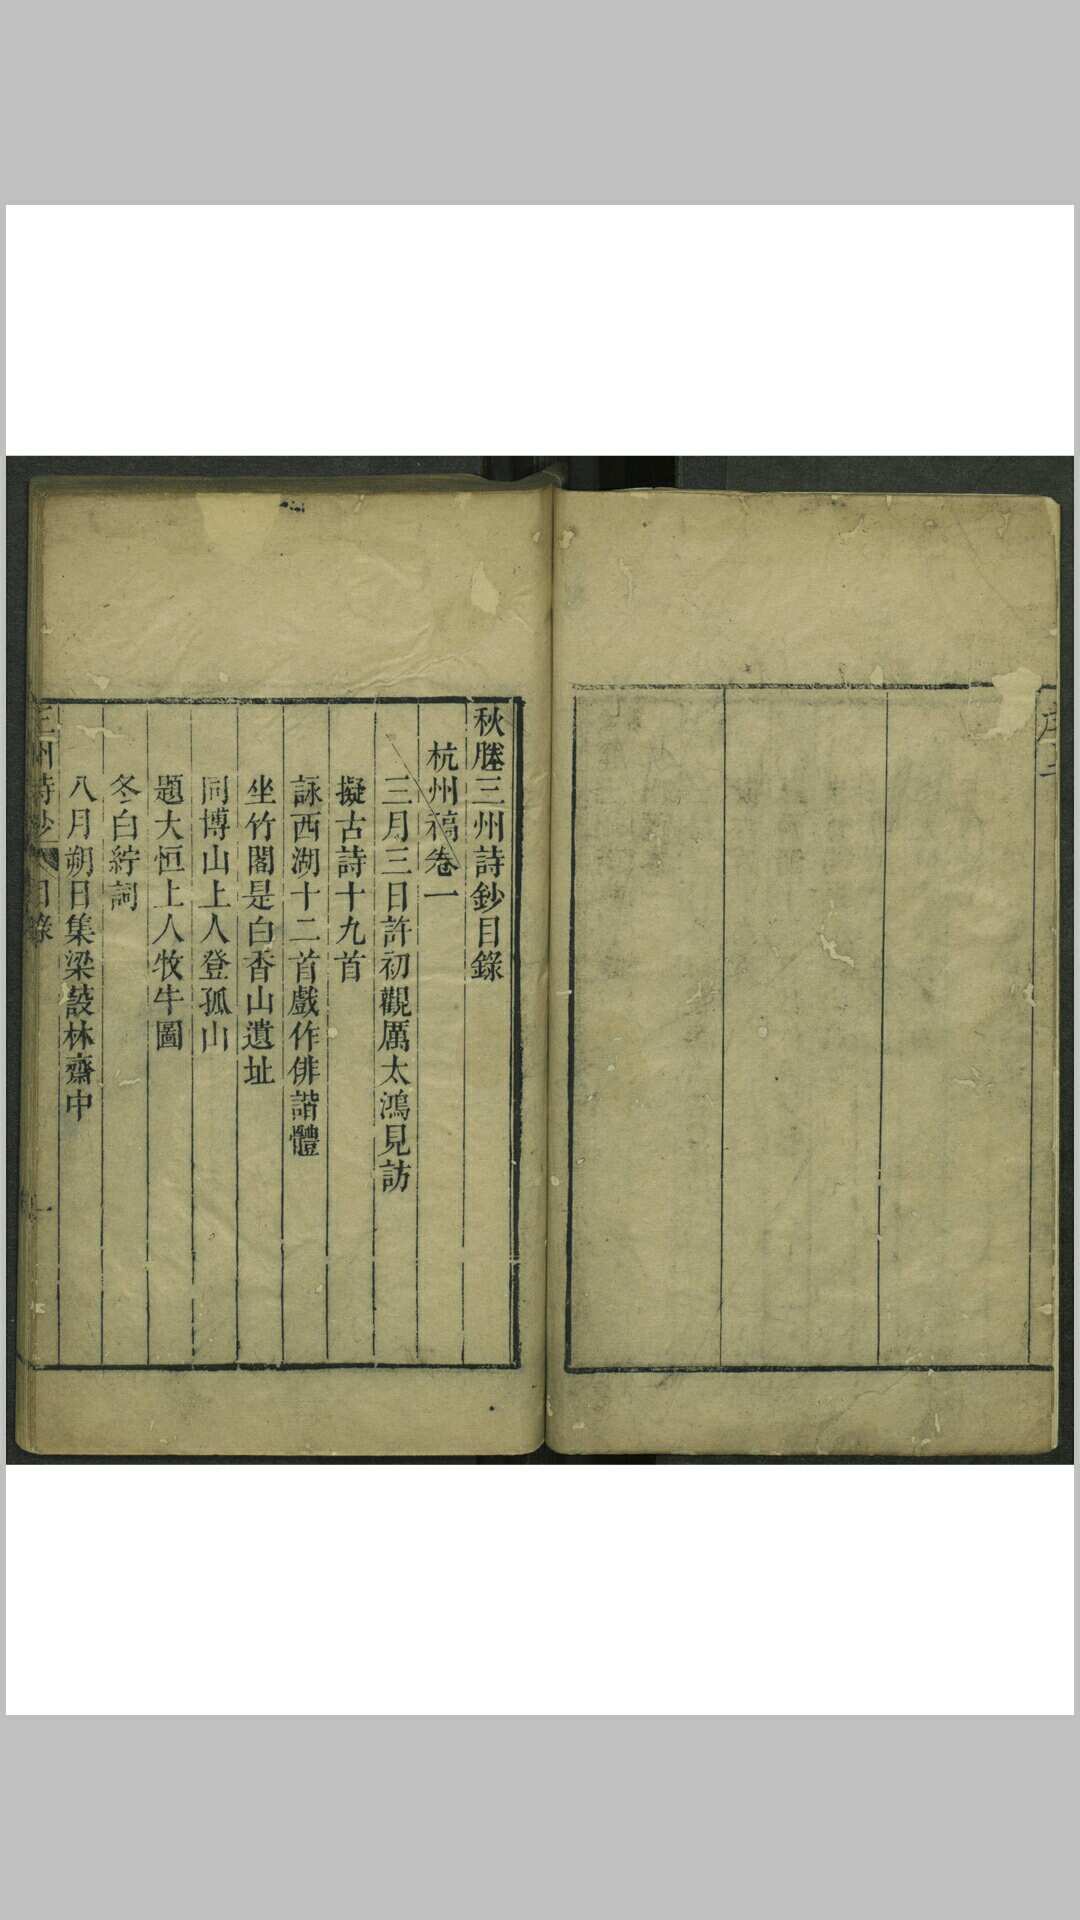 秋塍三州詩鈔目錄
杭州稿卷一
三月三日許初觀厲太鴻見訪
擬古詩十九首
詠西湖十二首戲作俳諧體
坐竹閣是白香山遺址
同博山上人登孤山
題大恒上人牧牛圖
冬白紵詞
八月朔日集梁蔎林齋中
三州詩鈔 目錄 一